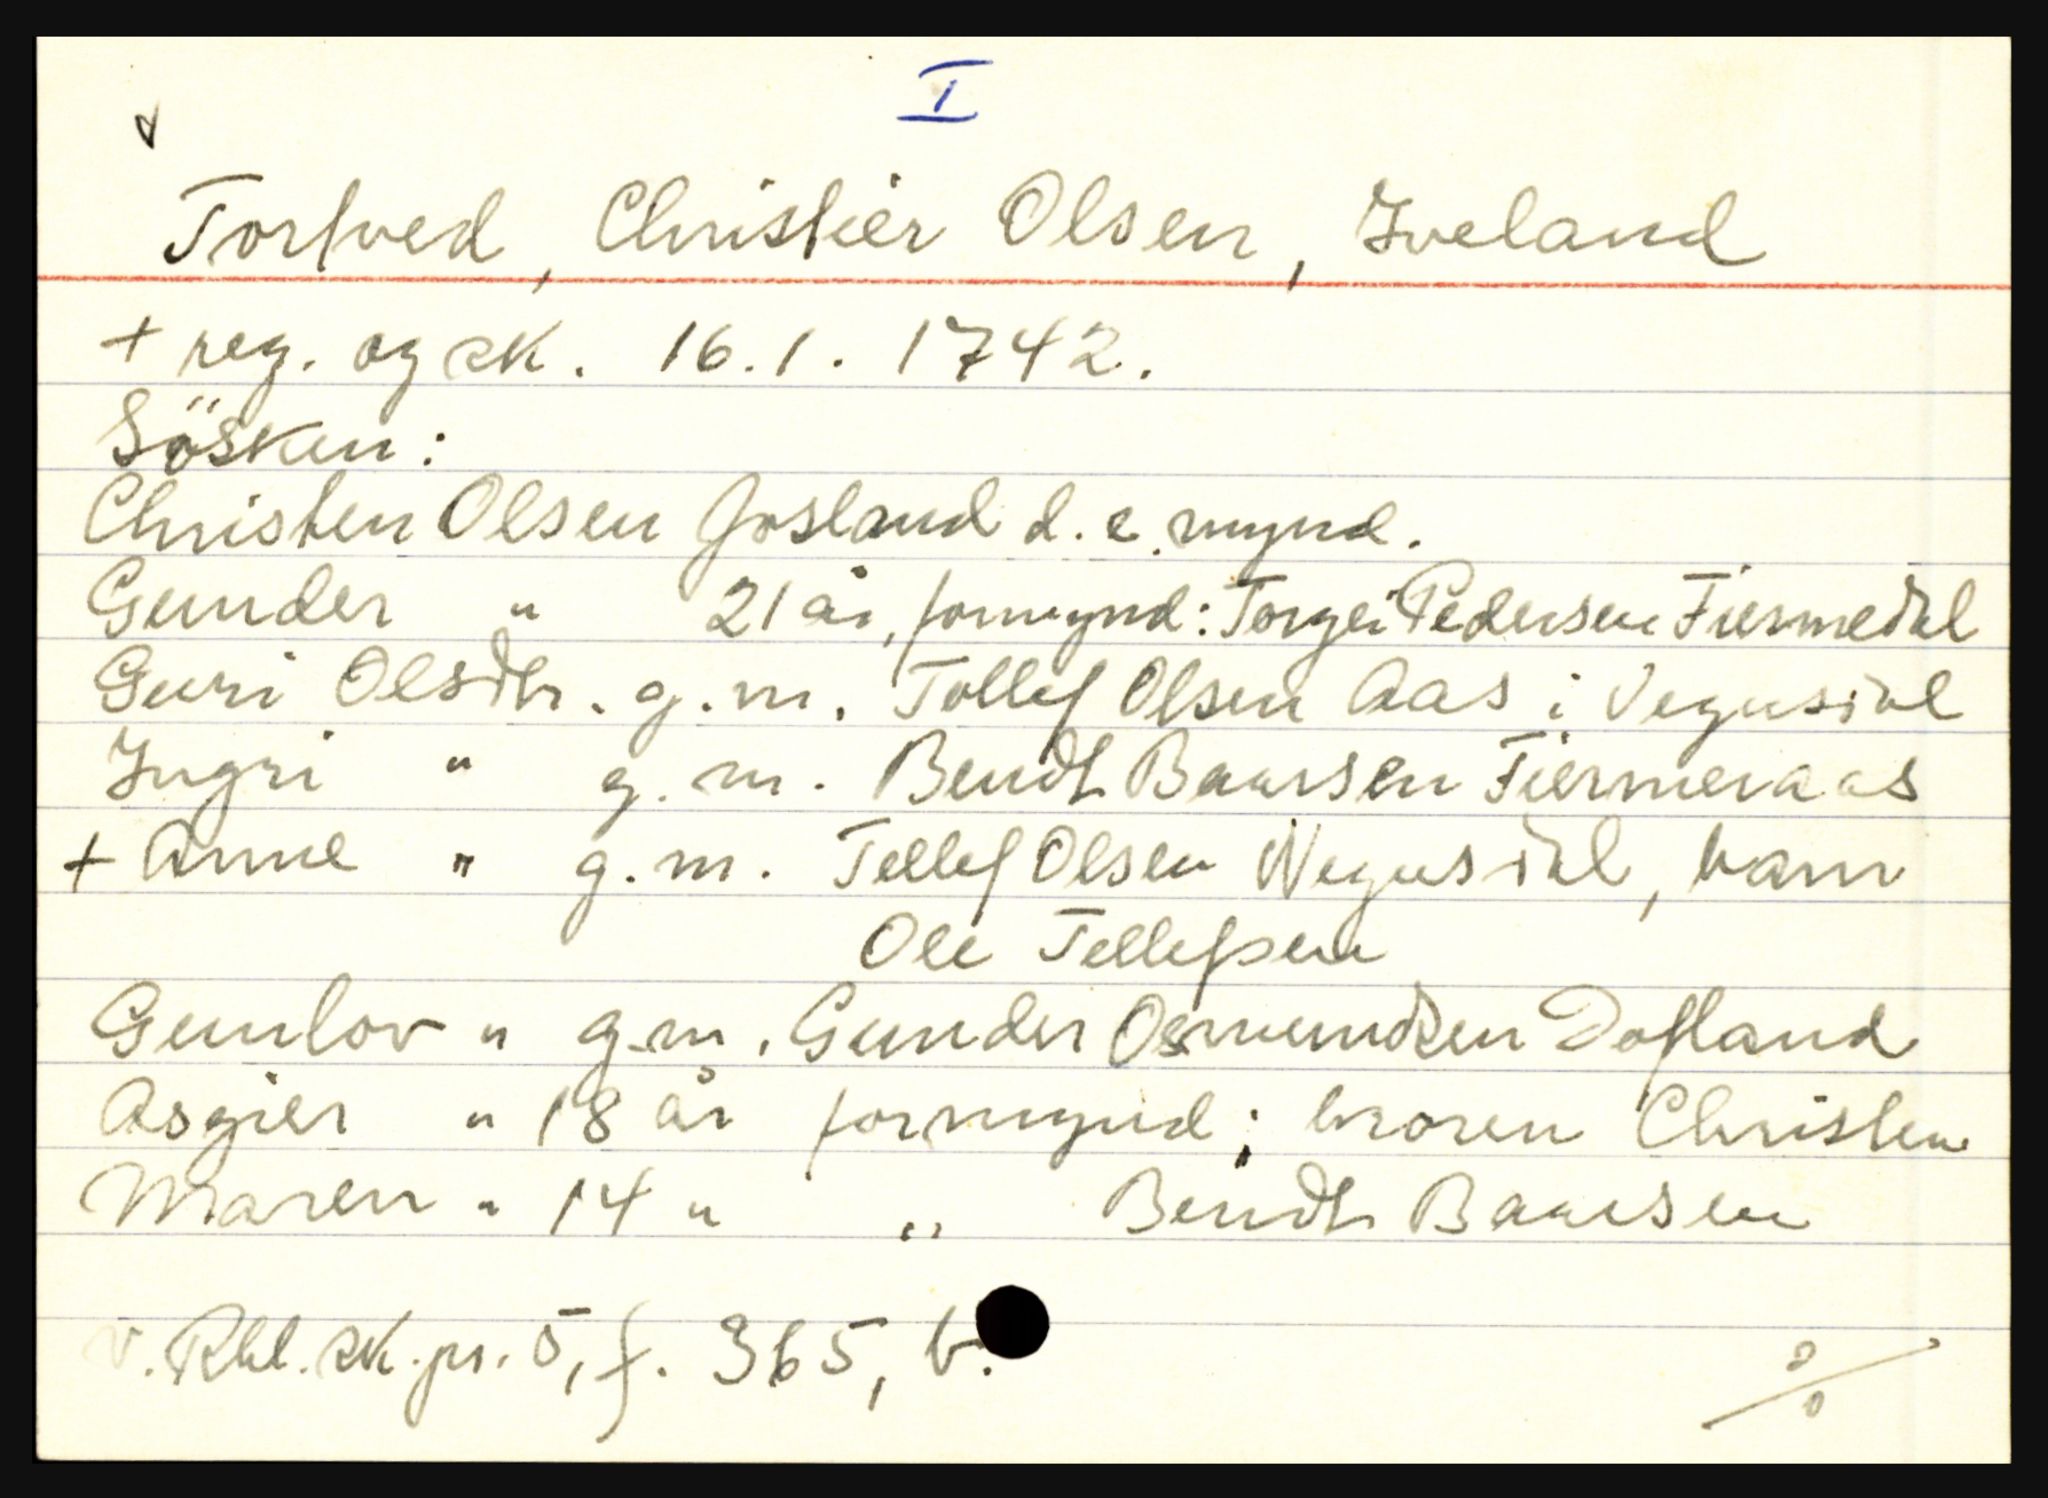 I
Tortved, Christier Olsen, Iveland
+ reg. og sk. 16.1. 1742.
Sösken:
Christen Olsen Josland d. e. mynd.
Gunder " 21 år, formynd: Torgei Pedersen Fiermedal
Guri Olsdtr. g.m. Tollef Olsen Aas i Vegusdal
Ingri " g.m. Bendt Baarsen Fiermeraas
+ Anne " g.m. Tellef Olsen Wegusdal, barn
Ole Tellefsen
Gunlov " g.m. Gunder Osmundsen Dofland
Asgier " 18 år formynd; broren Christen
Maren " 14 " " Bendt Baarsen
v. Rbl. sk. pr. 5, f. 365, b.
%